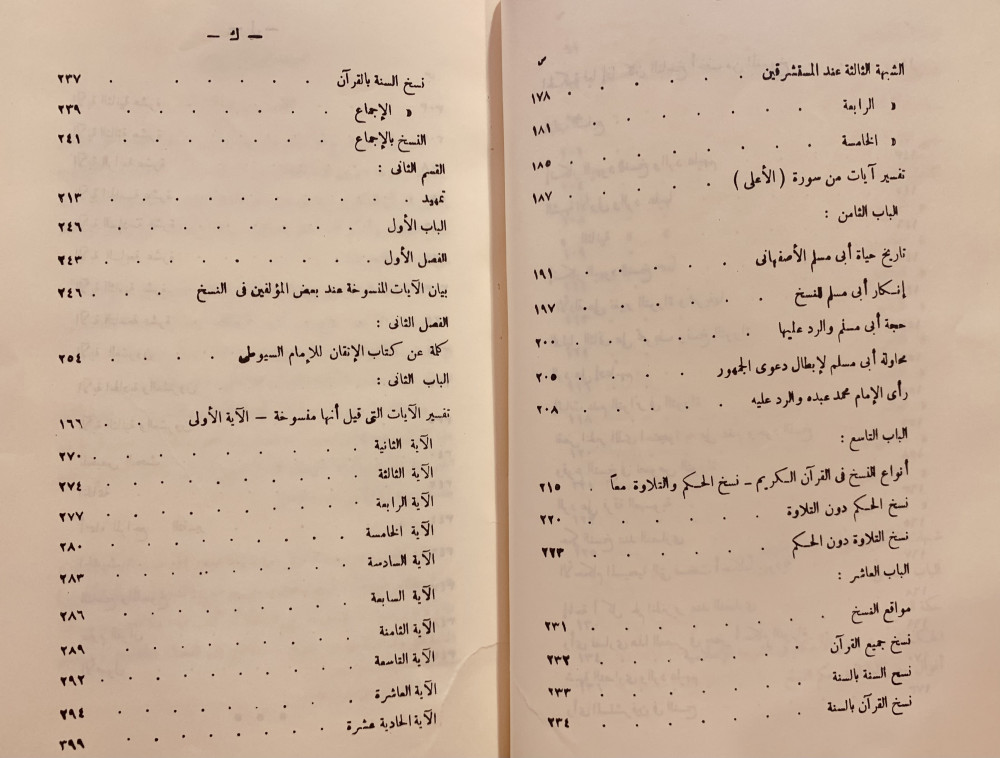 الشبهة الثالثة عند المسقشرقين . . . . . ١٧٨
« الرابعة . . . . . . ١٨١
« الخامسة . . . . . . ١٨٥
تفسير آيات من سورة ( الأعلى ) . . . . . ١٨٧
الباب الثامن :
تاريخ حياة أبى مسلم الأصفهانى . . . . . ١٩١
إنكار أبى مسلم للنسخ . . . . . ١٩٧
حجة أبى مسلم والرد عليها . . . . . ٢٠٠
محاولة أبى مسلم لإبطال دعوى الجمهور . . . . ٢٠٥
رأى الإمام محمد عبده والرد عليه . . . . . ٢٠٨
الباب التاسع :
أنواع النسخ فى القرآن الكريم – نسخ الحكم والتلاوة معاً . ٢١٥
نسخ الحكم دون التلاوة . . . . . ٢٢٠
نسخ التلاوة دون الحكم . . . . . ٢٢٣
الباب العاشر :
مواقع النسخ . . . . . . ٢٣١
نسخ جميع القرآن . . . . . . ٢٣٢
نسخ السنة بالسنة . . . . . . ٢٣٣
نسخ القرآن بالسنة . . . . . . ٢٣٤
– ك –
نسخ السنة بالقرآن . . . . . . ٢٣٧
« الإجماع . . . . . . ٢٣٩
النسخ بالإجماع . . . . . . ٢٤١
القسم الثانى :
تمهيد . . . . . . ٢١٣
الباب الأول . . . . . . ٢٤٦
الفصل الأول . . . . . . ٢٤٣
بيان الآيات المنسوخة عند بعض المؤلفين فى النسخ . . . ٢٤٦
الفصل الثانى :
كلمة عن كتاب الإتقان للإمام السيوطى . . . . ٢٥٤
الباب الثانى :
تفسير الآيات التى قيل أنها مفسوخة – الآية الأولى . . ١٦٦
الآية الثانية . . . . . . ٢٧٠
الآية الثالثة . . . . . . ٢٧٤
الآية الرابعة . . . . . . ٢٧٧
الآية الخامسة . . . . . . ٢٨٠
الآية السادسة . . . . . . ٢٨٣
الآية السابعة . . . . . . ٢٨٦
الآية الثامنة . . . . . . ٢٨٩
الآية التاسعة . . . . . . ٢٩٢
الآية العاشرة . . . . . . ٢٩٤
الآية الحادية عشرة . . . . . . ٣٩٩